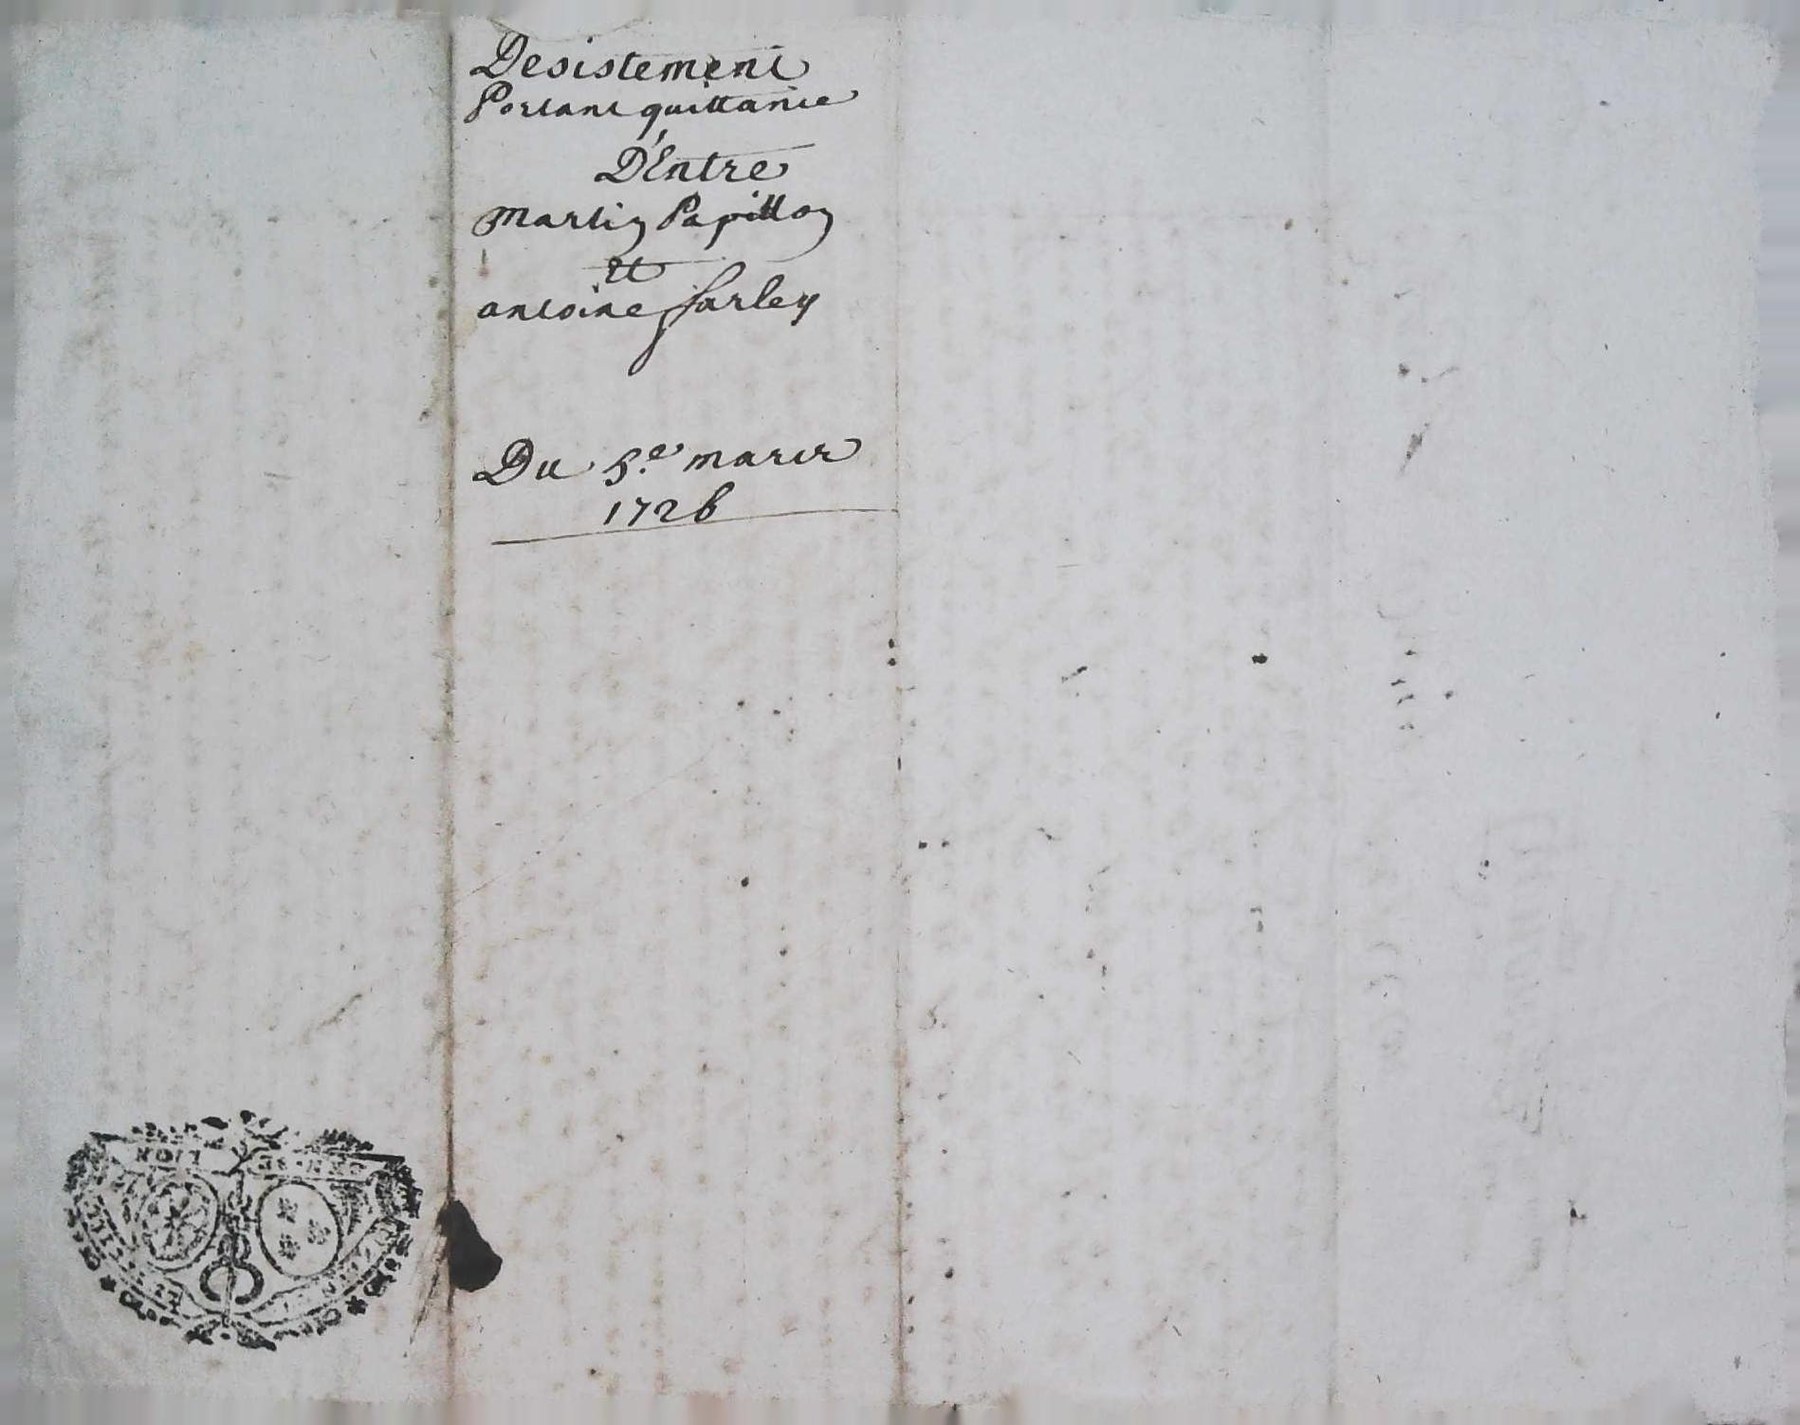 Desistement
Portant quittance
D'Entre
Martin Papillon
Et
antoine farley
Du 5.e mars
1726